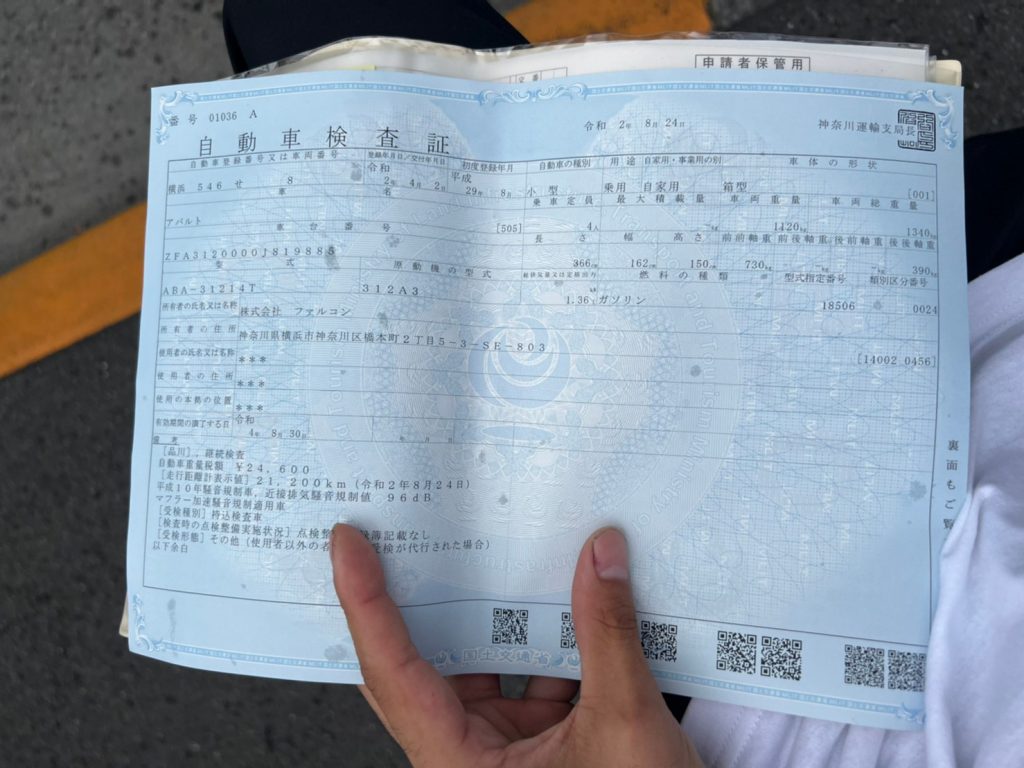 申請者保管用
番号 01036 A
令和 2年 8月24日 神奈川運輸支局長
自動車検査証
自動車登録番号又は車両番号 登録年月日/交付年月日 初度登録年月 自動車の種別 用途 自家用・事業用の別 車体の形状
横浜 546 せ 8 令和 2年 4月 2日 平成 29年 8月 小型 乗用 自家用 箱型 [001]
車名 乗車定員 最大積載量 車両重量 車両総重量
アバルト [505] 4人 -kg 1120kg 1340kg
車台番号 長さ 幅 高さ 前前軸重 前後軸重 後前軸重 後後軸重
ZFA3120000J819885 366cm 162cm 150cm 730kg -kg -kg 390kg
型式 原動機の型式 総排気量又は定格出力 燃料の種類 型式指定番号 類別区分番号
ABA-31214T 312A3 1.36 ガソリン 18506 0024
所有者の氏名又は名称 株式会社 ファルコン
所有者の住所 神奈川県横浜市神奈川区橋本町2丁目5-3-SE-803 [14002 0456]
使用者の氏名又は名称 ***
使用者の住所 ***
使用の本拠の位置 ***
有効期間の満了する日 令和 4年 8月 30日 年 月 日
備考
[品川],継続検査
自動車重量税額 ¥24,600
[走行距離計表示値] 21,200km (令和2年8月24日)
平成10年騒音規制車,近接排気騒音規制値 96dB
マフラー加速騒音規制適用車
[受検種別] 持込検査車
[検査時の点検整備実施状況] 点検整 簿記載なし
[受検形態] その他 (使用者以外の者 受検が代行された場合)
以下余白
裏面もご覧
国土交通省